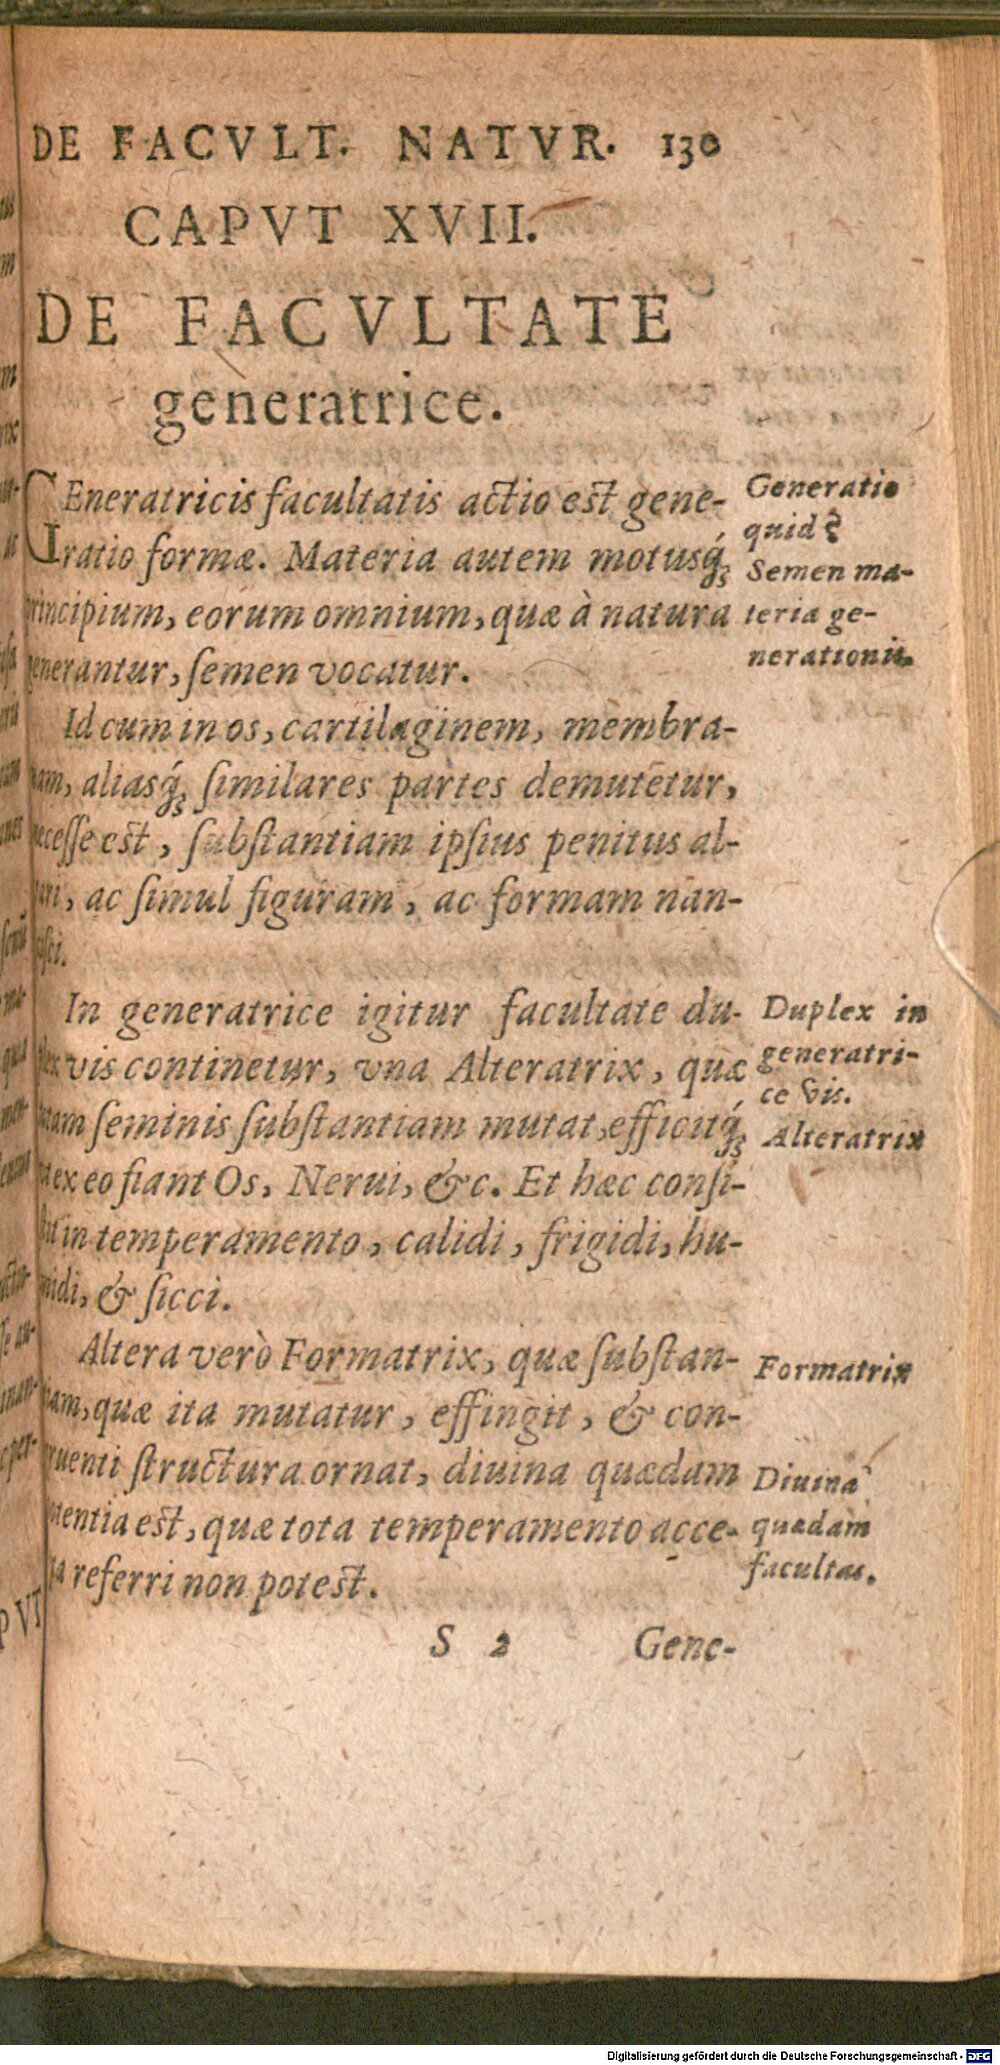 DE FACVLT. NATVR. 130
CAPVT XVII.
DE FACVLTATE
generatrice.
GEneratricis facultatis actio est gene-
ratio formæ. Materia autem motusq́;
principium, eorum omnium, quæ à natura
generantur, semen vocatur.
Generatio
quid?
Semen ma-
teria ge-
nerationis.
Id cum in os, cartilaginem, membra-
nam, aliasq́; similares partes demutetur,
necesse est, substantiam ipsius penitus al-
ac simul figuram, ac formam nan-
In generatrice igitur facultate du-
plex vis continetur, vna Alteratrix, quæ
seminis substantiam mutat, efficitq́;
ex eo fiant Os, Nerui, &c. Et hæc consi-
in temperamento, calidi, frigidi, hu-
midi, & sicci.
Duplex in
generatri-
ce vis.
Alteratrix
Altera verò Formatrix, quæ substan-
tiam, quæ ita mutatur, effingit, & con-
gruenti structura ornat, diuina quædam
potentia est, quæ tota temperamento acce-
pta referri non potest.
Formatrix
Diuina
quædam
facultas.
S 2 Gene-
DE FACVLT. Digitalisierung gefördert durch die Deutsche Forschungsgemeinschaft - DFG